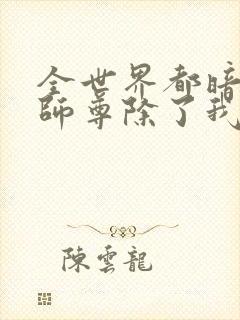 全世界都暗
師尊除了我
陳雲龍